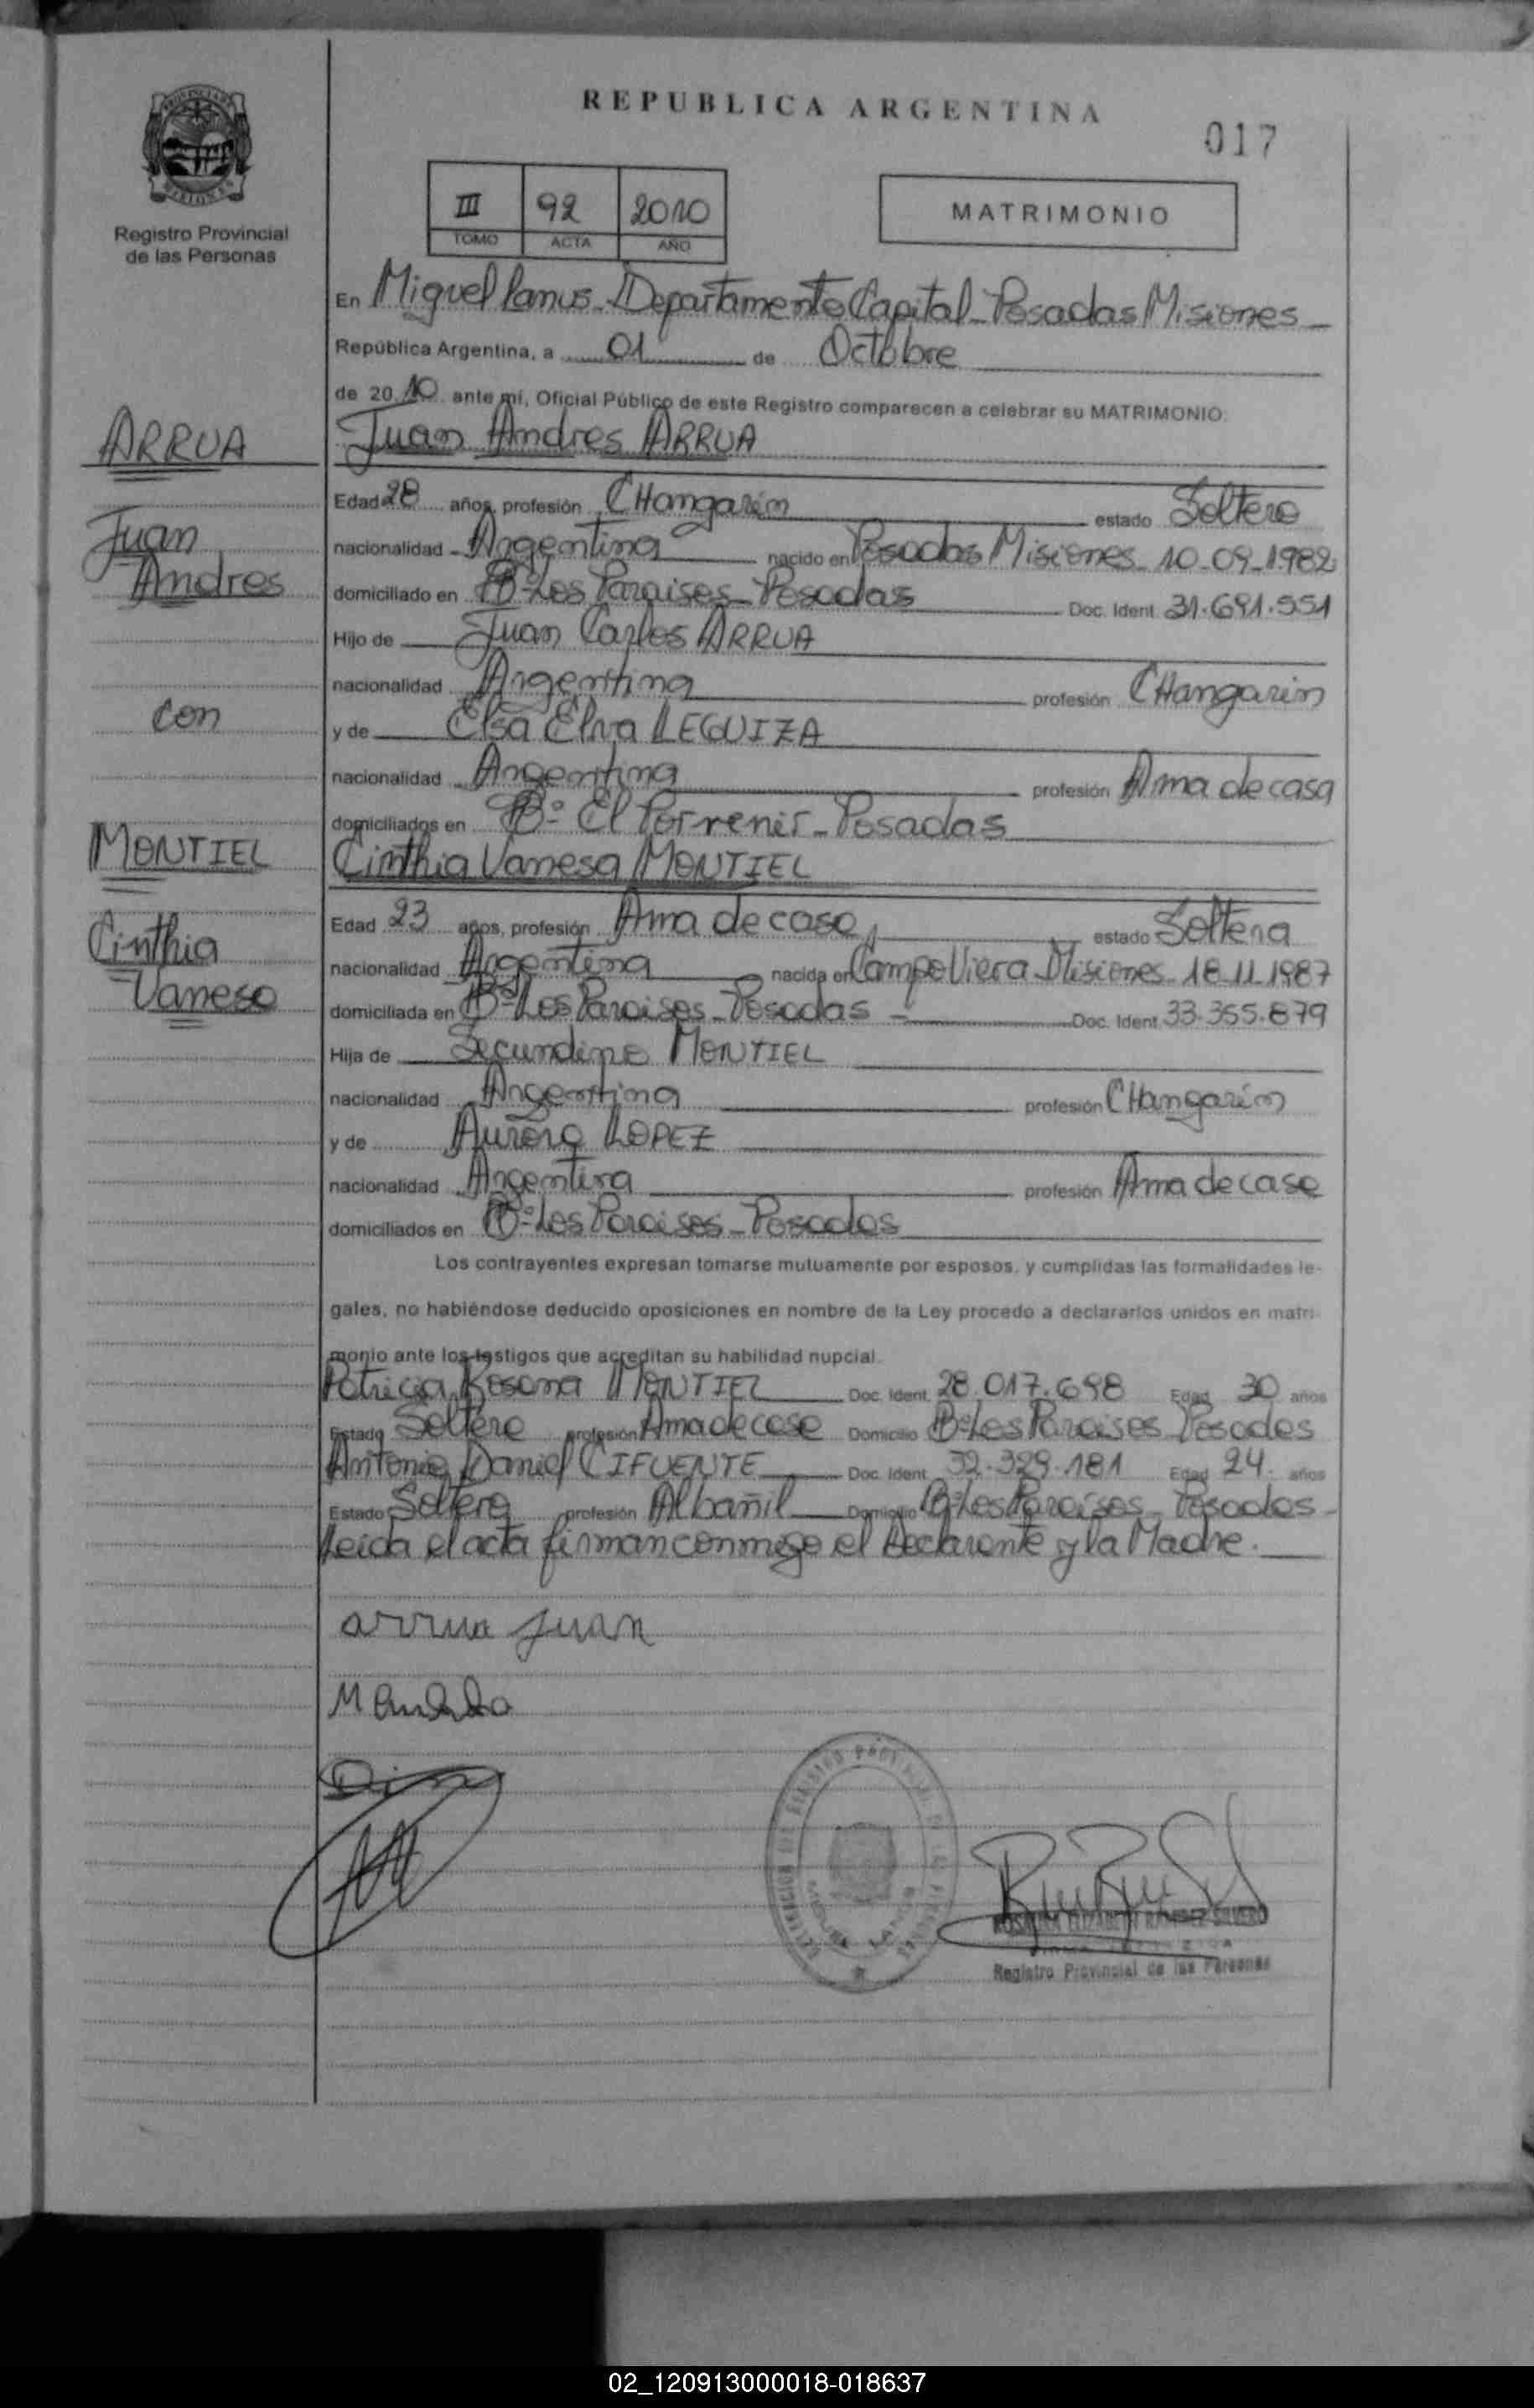 REPUBLICA ARGENTINA
017
Registro Provincial
de las Personas
III 92 2010
TOMO ACTA AÑO
MATRIMONIO
En Miguel Lanus - Departamento Capital - Posadas Misiones
República Argentina, a 01 de Octubre
de 20 10 ante mí, Oficial Público de este Registro comparecen a celebrar su MATRIMONIO:
ARRUA
Juan Andres ARRUA
Edad 28 años, profesión CHangarin estado Soltero
Juan
Andres
nacionalidad Argentina nacido en Posadas Misiones - 10-09-1982
domiciliado en Bº Los Paraisos - Posadas Doc. Ident. 31.691.551
Hijo de Juan Carlos ARRUA
nacionalidad Argentina profesión CHangarin
con
y de Elsa Elva LEGUIZA
nacionalidad Argentina profesión Ama de casa
domiciliados en Bº El Porvenir - Posadas
MONTIEL
Cinthia Vanesa MONTIEL
Edad 23 años, profesión Ama de casa estado Soltera
Cinthia
Vanesa
nacionalidad Argentina nacida en Campo Viera Misiones - 18-11-1987
domiciliada en Bº Los Paraisos - Posadas - Doc. Ident. 33.355.879
Hija de Secundino MONTIEL
nacionalidad Argentina profesión CHangarin
y de Aurora LOPEZ
nacionalidad Argentina profesión Ama de casa
domiciliados en Bº Los Paraisos - Posadas
Los contrayentes expresan tomarse mutuamente por esposos, y cumplidas las formalidades le-
gales, no habiéndose deducido oposiciones en nombre de la Ley procedo a declararlos unidos en matri-
monio ante los testigos que acreditan su habilidad nupcial.
Patricia Rosana MONTIEL Doc. Ident. 28.017.698 Edad 30 años
Estado Soltera profesión Ama de casa Domicilio Bº Los Paraisos Posadas
Antonio Daniel CIFUENTE Doc. Ident. 32.329.181 Edad 24 años
Estado Soltero profesión Albañil Domicilio Bº Los Paraisos - Posadas -
Leida el acta firman conmigo el Declarante y la Madre.
arrua juan
ROSALBA ELIZABETH RAMIREZ SILVERO
Registro Provincial de las Personas
02_120913000018-018637